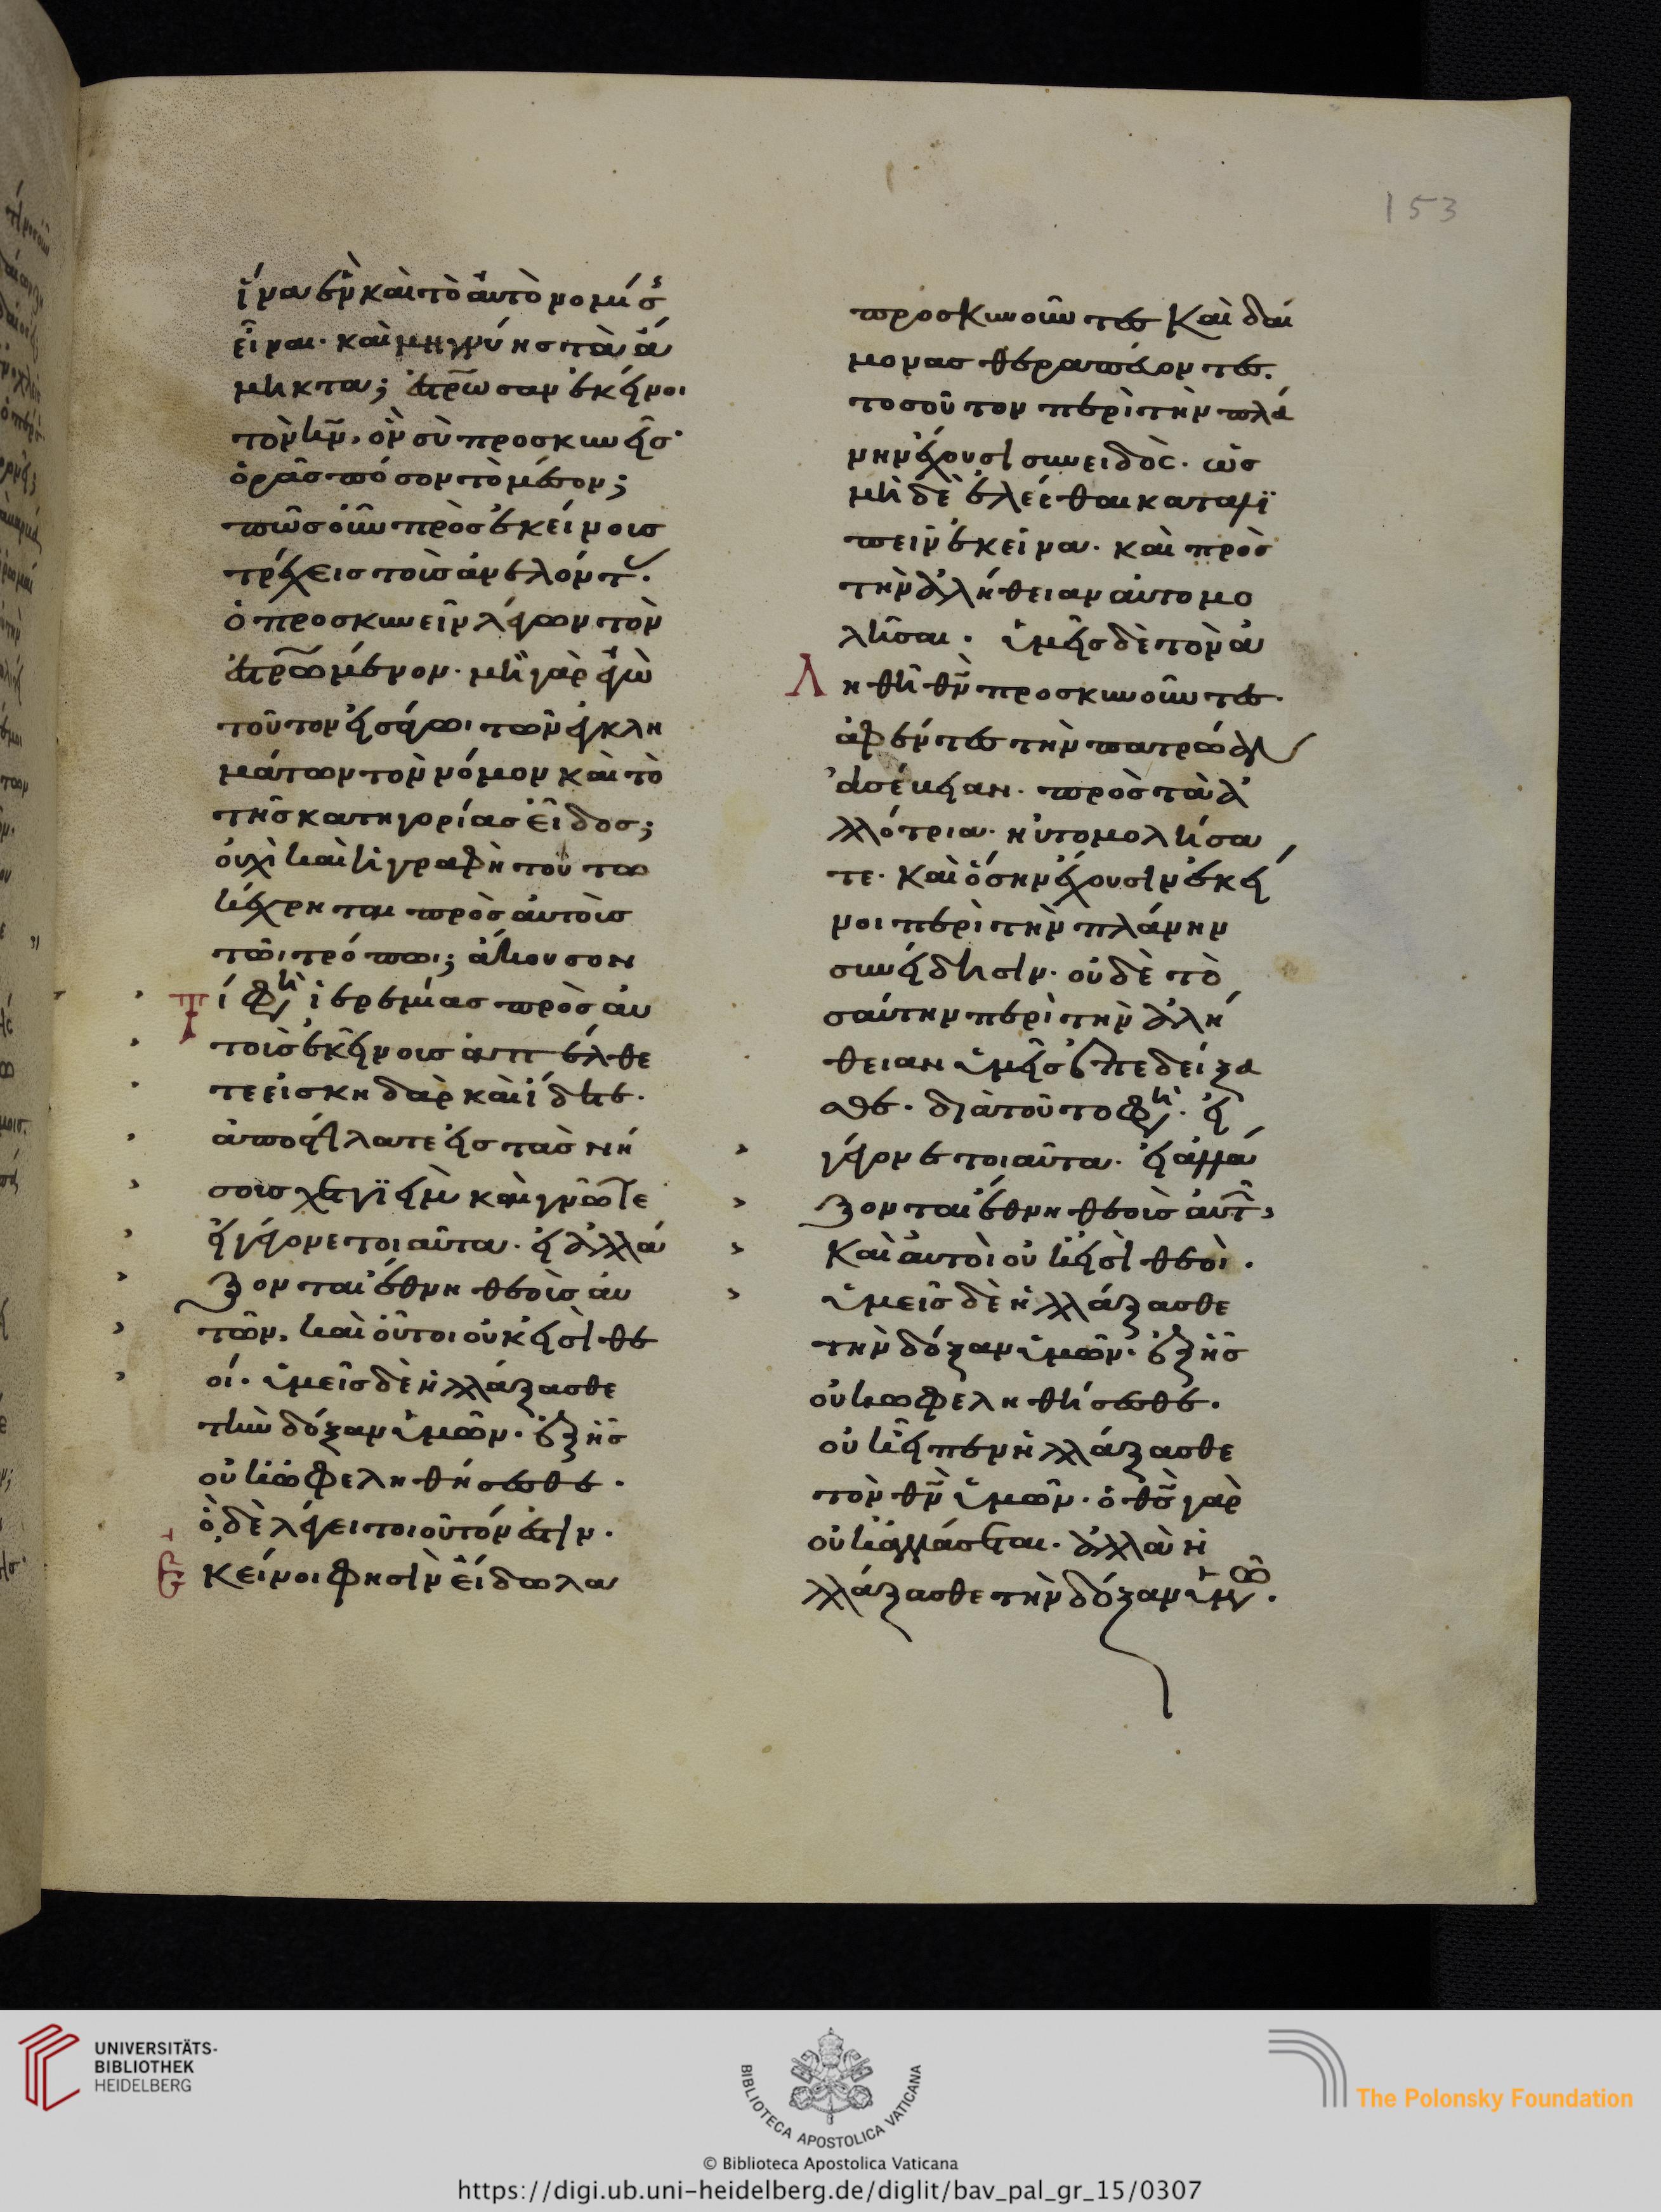 153
ἵνα ἓν καὶ τὸ αὐτὸ νομίσῃς
εἶναι. καὶ μὴ μιγνύῃς τὰ ἄ
μικτα; ἐστρωσαν ἐκεῖνοι
τὸν χν, ὃν σὺ προσκυνεῖς·
ὁρᾶς πόσον τὸ μέσον;
πῶς οὖν πρὸς ἐκείνοις
τρέχεις τοῖς ἀνελόντας.
ὁ προσκυνεῖν λέγων τὸν
ἐστρωμένον. μὴ γὰρ ἐγὼ
τοῦτον εἰσάγω τῶν ἐγκλη
μάτων τὸν νόμον καὶ τὸ
τῆς κατηγορίας εἶδος;
οὐχὶ καὶ ἡ γραφὴ τούτω
κέχρηται πρὸς αὐτοὺς
τῶι τρόπωι; ἄκουσον
τί φησὶν ἱερεμίας πρὸς αὐ
τοῖς ἐκείνοις ἀπέλθε
τε εἰς κηδὰρ καὶ ἴδετε.
ἀποστείλατε εἰς τὰς νή
σοις χεττιεὶμ καὶ γνῶτε
εἰ γέγονε τοιαῦτα. εἰ ἀλλά
ξονται ἔθνη θεοὺς αὐ
τῶν, καὶ οὗτοι οὐκ εἰσὶ θε
οί. ὑμεῖς δὲ ἠλλάξασθε
τὴν δόξαν ὑμῶν. ἐξ ἧς
οὐκ ὠφεληθήσεσθε.
ὃ δὲ λέγει τοιοῦτόν ἐστιν.
ἐκεῖνοι φησὶν εἴδωλα
προσκυνοῦντες καὶ δαί
μονας θεραπεύοντες.
τοσοῦτον περὶ τὴν πλά
νην ἔχουσι συνειδὸς. ὡς
μηδὲ ἐλέεθαι καταλι
πεῖν ἐκεῖνα. καὶ πρὸς
τὴν ἀλήθειαν αὐτομο
λῆσαι. ὑμεῖς δὲ τὸν ἀ
ληθῆ θν προσκυνοῦντες.
ἀφέντες τὴν πατρῴαν
ἀσέβειαν. πρὸς τὰ ἀ
λλότρια. ηὐτομολήσα
τε. καὶ ὅσην ἔχουσιν ἐκεῖ
νοι περὶ τὴν πλάνην
συνείδησιν. οὐδὲ το
σαύτην περὶ τὴν ἀλή
θειαν ὑμεῖς ἐπεδείξα
σθε. διὰ τοῦτο φησίν. εἰ
γέγονε τοιαῦτα. εἰ ἀλλά
ξονται ἔθνη θεοὺς αὐτῶν,
καὶ αὐτοὶ οὐκ εἰσὶ θεοὶ.
ὑμεῖς δὲ ἠλλάξασθε
τὴν δόξαν ὑμῶν. ἐξ ἧς
οὐκ ὠφεληθήσεσθε.
οὐκ εἶπεν ἠλλάξασθε
τὸν θν ὑμῶν. ὁ θς γὰρ
οὐκ ἀλλάσσεται. ἀλλὰ ἠ
λλάξασθε τὴν δόξαν ὑμῶν.
UNIVERSITÄTS-
BIBLIOTHEK
HEIDELBERG
BIBLIOTECA APOSTOLICA VATICANA
The Polonsky Foundation
© Biblioteca Apostolica Vaticana
https://digi.ub.uni-heidelberg.de/diglit/bav_pal_gr_15/0307